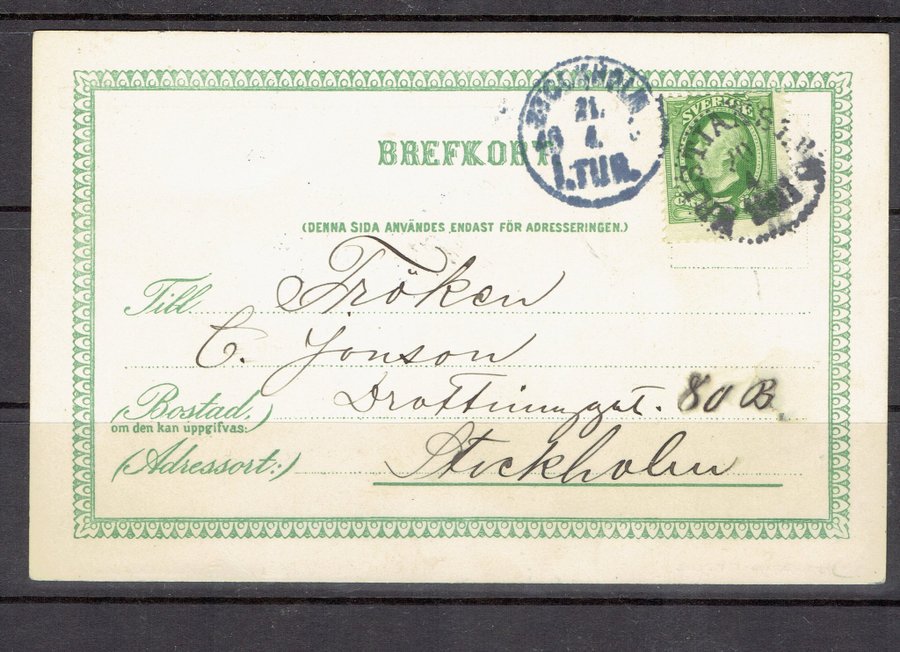 STOCKHOLM
21.
4.
1.TUR.
SVERIGE
KRISTIANSTAD
BREFKORT
(DENNA SIDA ANVÄNDES ENDAST FÖR ADRESSERINGEN.)
Till Fröken
C. Jonson
(Bostad,) Drottninggat. 80 B.
om den kan uppgifvas:
(Adressort:) Stockholm